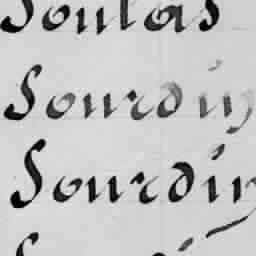 Soulas
Sourdin
Sourdin